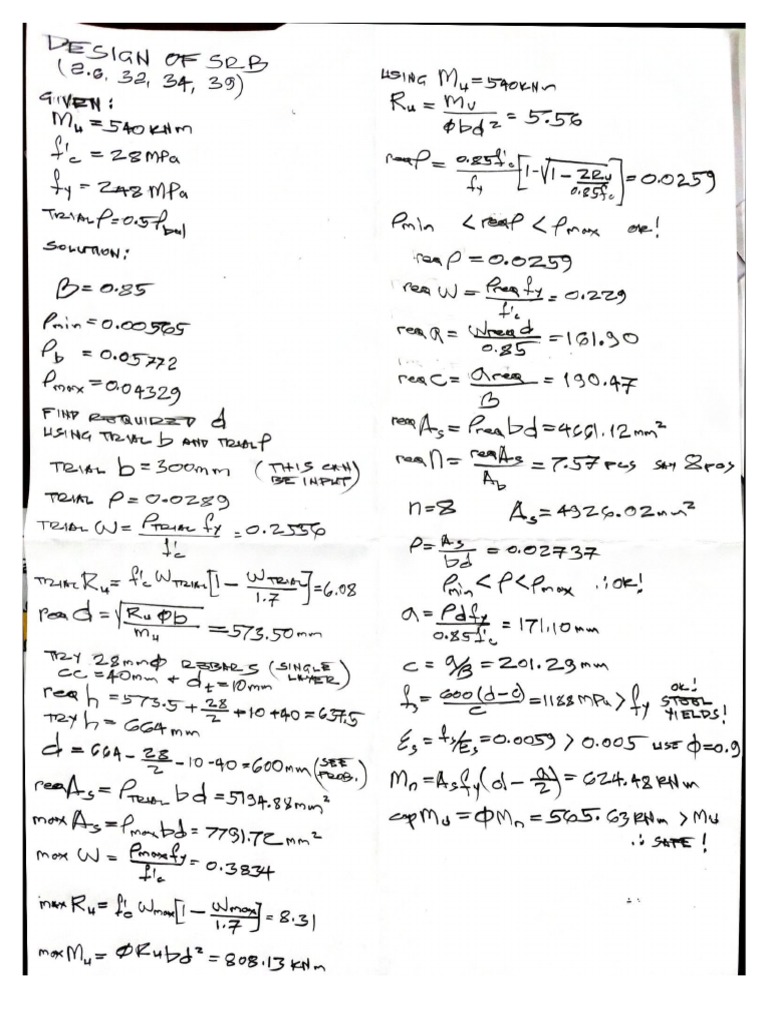 DESIGN OF SRB
(2.6, 32, 34, 39)
GIVEN:
Mu = 540 kNm
f'c = 28 MPa
fy = 248 MPa
TRIAL ρ = 0.5ρbal
SOLUTION:
β = 0.85
ρmin = 0.00565
ρb = 0.05772
ρmax = 0.04329
FIND REQUIRED d
USING TRIAL b AND TRIAL ρ
TRIAL b = 300mm (THIS CAN BE INPUT)
TRIAL ρ = 0.0289
TRIAL ω = ρTRIAL fy / f'c = 0.2556
TRIAL Ru = f'c ωTRIAL [1 - ωTRIAL/1.7] = 6.08
req d = √(Ru φb / Mu) = 573.50mm
TRY 28mmφ REBARS (SINGLE LAYER)
CC = 40mm & dt = 10mm
req h = 573.5 + 28/2 + 10 + 40 = 637.5
TRY h = 664mm
d = 664 - 28/2 - 10 - 40 = 600mm (SEE PROB.)
req As = ρTRIAL bd = 5194.88mm²
max As = ρmax bd = 7791.72mm²
max ω = ρmax fy / f'c = 0.3834
max Ru = f'c ωmax [1 - ωmax/1.7] = 8.31
max Mu = φRubd² = 808.13 kNm
USING Mu = 540kNm
Ru = Mu / φbd² = 5.56
req ρ = 0.85f'c / fy [1 - √(1 - 2Ru/0.85f'c)] = 0.0259
ρmin < req ρ < ρmax ok!
req ρ = 0.0259
req ω = ρreq fy / f'c = 0.229
req a = ωreq d / 0.85 = 161.90
req c = areq / β = 190.47
req As = ρreq bd = 4661.12mm²
req n = req As / Ab = 7.57 pcs say 8 pcs
n = 8 As = 4926.02mm²
ρ = As / bd = 0.02737
ρmin < ρ < ρmax ∴ ok!
a = ρdfy / 0.85f'c = 171.10mm
c = a/β = 201.29mm
fs = 600(d-c) / c = 1188 MPa > fy ok! STEEL YIELDS!
Es = fs/Es = 0.0059 > 0.005 USE φ = 0.9
Mn = Asfy(d - a/2) = 624.48 kNm
cap Mu = φMn = 565.63 kNm > Mu
∴ SAFE!